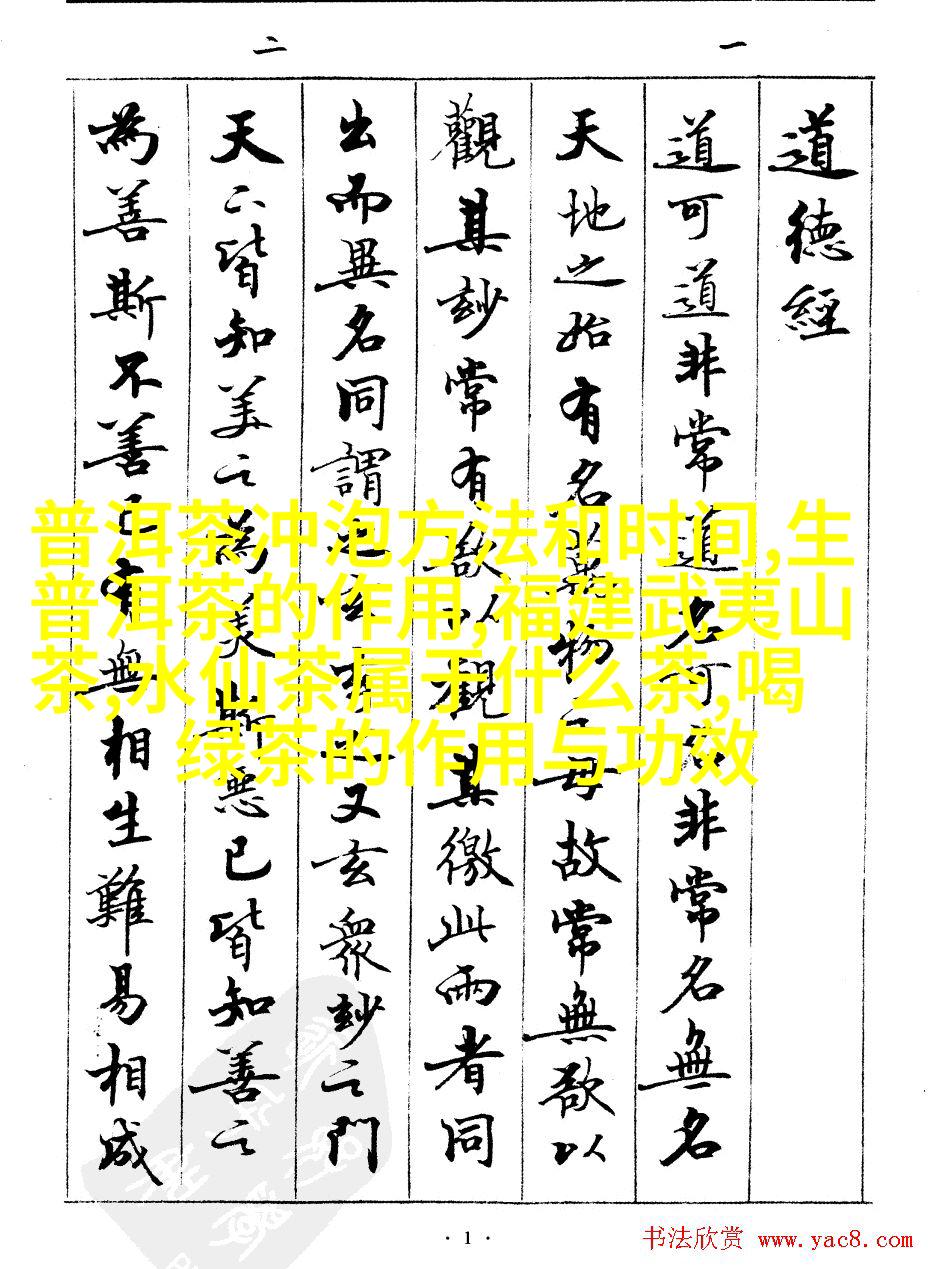 一
道德經
道可道非常道名可名非常名無名
天地之始有名萬物之母故常無欲以
觀其玅常有欲以觀其徼此兩者同
二
出而異名同謂之玄玄之又玄衆玅之門
天下皆知美之為美斯惡已皆知善之
為善斯不善已有無相生難易相成
普洱茶冲泡方法和时间,生
普洱茶的作用,福建武夷山
茶,水仙茶属于什么茶,喝
绿茶的作用与功效
· 1 ·
书法欣赏 www.yac8.com